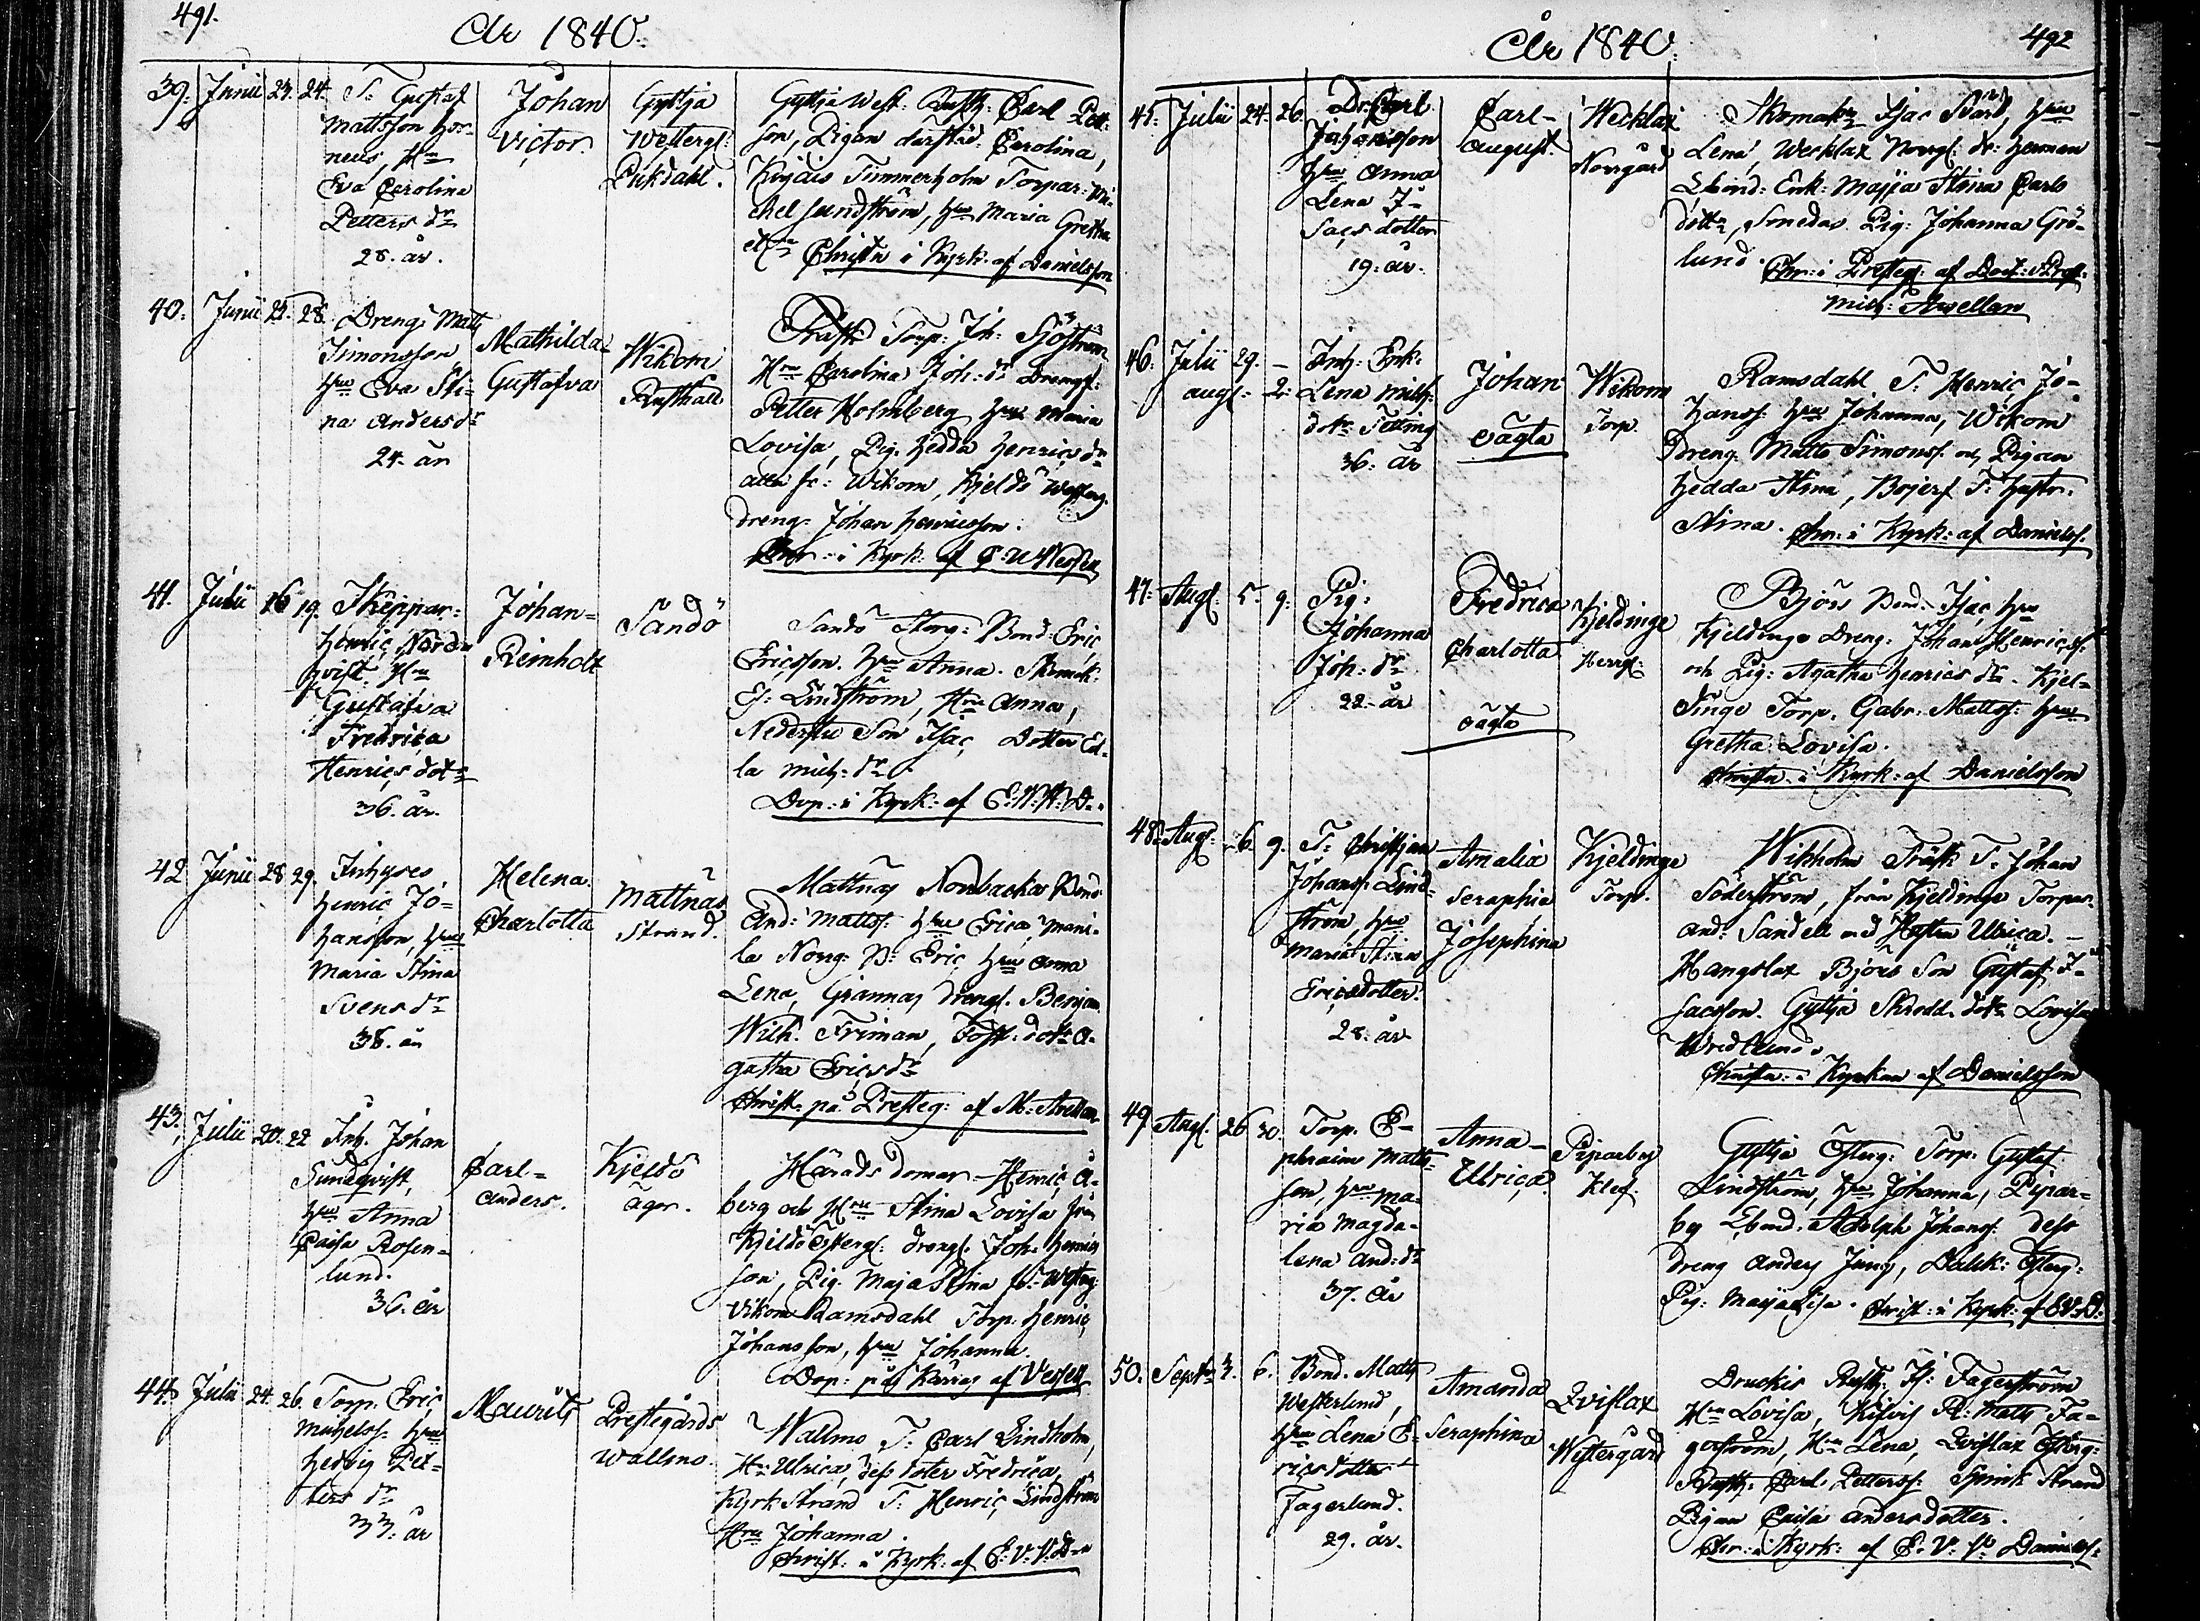 491.
År 1840.
39. Junii 23. 24.
T. Gustaf
Mattsson Hor-
neus, H:u
Eva Carolina
Petters dr
28. år.
Johan
Victor.
Gyttja
Westergl:
Gyttja West: Rusth: Carl Pett-
son, Pigan darstäd. Carolina,
Timmerholm Torpar: Mi-
chel Sundström, Hu Maria Gretha
Christn i Kyrk. af Danielsson
40. Junii 28.
Dreng: Matts
Simonsson
Hu Eva Sti-
na Anders dr
24. år
Mathilda
Gustafva
Wikom
Rusthåll
Torp: Joh: Sjöström
Hu Carolina Joh: dr Drengs:
Petter Holmberg Hu Maria
Lovisa, Pig. Hedda Henrics dr
alla fr: Wikom, Kjeldö Westerg.
dreng: Johan Henricsson.
Chr: i Kyrk: af
41. Julii 16 19.
Skeppar:
Henric Nord-
qvist. Hu
Gustafva
Fredrica
Henrics dotr
36. år.
Johan-
Reinholt
Sandö
Sandö Storg: Bond: Eric
Ericsson. Hu Anna.
Lindström, Hu Anna,
Son Isac, Dotter Ed-
la Mich: dr
Döp: i Kyrk: af E.V.V.D.
42 Junii 28 29.
Inhyses
Henric Jo-
hansson, Hu
Maria Stina
Svens dr
38. år
Helena
Charlotta
Mattnäs
Strand.
Mattnäs Norrbackas Bond:
And: Mattss: Hu Erica, Mani-
la Norrg: B: Eric Hu Anna
Lena, Grannas drengs. Benjam.
Wilh. Friman, Fost: dotr A-
gatha Erics dr
Christ: på Presteg: af M: Avellan
43. Julii 20. 22
Inh. Johan
Sundqvist,
Hu Anna
Caisa Rosen-
lund.
36. år
Carl-
Anders.
Kjeldö
ägor.
Härads domar. Henric Å-
berg och Hu Stina Lovisa från
Kjeldö Österg: drengs. Joh: Henrics
son, Pig. Maja Stina fr: Westerg:
Vikom Ramsdahl Torp. Henric
Johansson, Hu Johanna.
Döp: på Kärras af
44. Julii 24. 26.
Torp. Eric
Michelss: Hu
Hedvig Pet-
ters dr
33. år
Maurits
Prestegårds
Wallmo.
Wallmo T: Carl Lindholm,
Hu Ulrica, dess doter Fredrica,
Kyrk Strand T: Henric Lindström
Hu Johanna.
Christ: i Kyrk: af E. V: V: D
År 1840.
492
45. Julii 24. 26.
Dr: Carl
Johansson
Hu Anna
Lena I-
sacs dotter
19. år.
Carl-
August.
Wecklax
Norrgård
Isac Hu
Lena, Wecklax Norrg: dr: Herman
Enk: Majja Stina Carls
dotr, Smedas Pig: Johanna Grö-
lund. Chr: i Presteg: af Doct: & Prost
Mich: Avellan
46. Julii 29. -
Aug: - 2.
Inh: Enk:
Lena Mich:
dotr
36. år
Johan
oägta
Wikom
Torp.
Ramsdahl T. Henric Jo-
hanss: Hu Johanna, Wikom
Dreng Matts Simonss: och Pigan
Hedda Stina, T: Hustr:
Stina. Chr: i Kyrk: af Danielss.
47. Aug: 5. 9.
Pig:
Johanna
Joh: dr
22. år
Fredrica
Charlotta
oägta
Kjeldinge
Herrg:
Björs Bond: Isac Hu
Kjeldinge Dreng: Johan Henricss:
och Pig: Agatha Henrics dr. Kjel-
dinge Torp. Gabr: Mattss: Hu
Gretha Lovisa.
Christn i Kyrk: af Danielsson
48. Aug: 6. 9.
T. Christjan
Johanss: Lind-
ström, Hu
Maria Stina
Ericsdotter.
28. år
Amalia
Seraphia
Josephina
Kjeldinge
Torp.
Wikholm T. Johan
Söderström, från Kjeldinge Torpar.
And: Sandell med Hustru Ulrica. -
Hangslax Björs Son Gustaf I-
sacsson. Gyttja Skredd: dotr Lovisa
Wredlund.
Christn i Kyrkan af Danielsson
49 Aug: 26 30.
Torp. E-
phraim Matts-
son, Hu Ma-
ria Magda-
lena And: dr
37. år
Anna-
Ulrica
Piparby
Klef.
Gyttja Österg: Torp: Gustaf
Lindström, Hu Johanna, Pipar-
by Adolph Johanss: dess
dreng Anders Jung, Österg:
Pig: Majja Lisa. Christ: i Kyrk: af E.V.D.
50. Septr 6.
Bond. Matts
Westerlund,
Hu Lena E-
rics dotter
Fagerlund.
29. år.
Amanda
Seraphina
Qviflax
Westergård
Druckis Rusth: Is: Fagerström
Hu Lovisa, R: Matts Fa-
gerström, Hu Lena, Qviflax Österg:
Rusth: Carl Petterss: Spink Strand
Pigan Caisa Andersdotter.
Chr: i Kyrk: af E. V: D. Danielss: